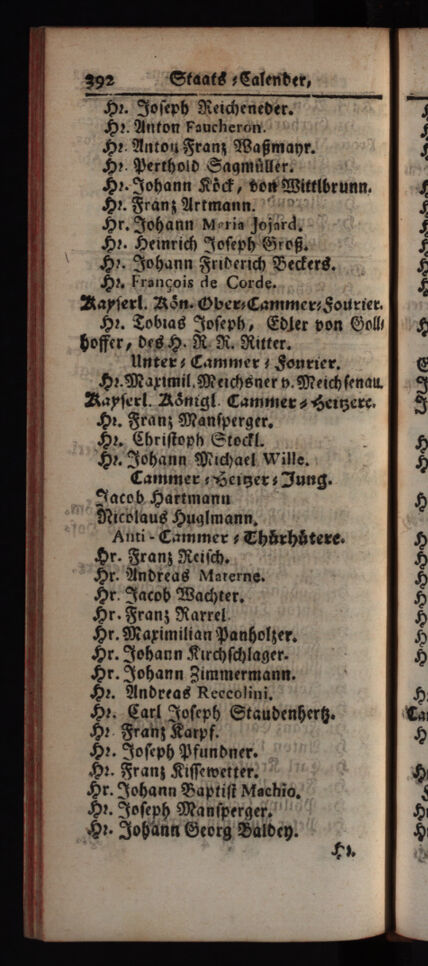 392 Staats-Calender,
Hr. Joseph Reicheneder.
Hr. Anton Faucheron.
Hr. Anton Franz Waßmayr.
Hr. Perthold Sagmüller.
Hr. Johann Köck, von Wittlbrunn.
Hr. Franz Artmann.
Hr. Johann Maria Jojard.
Hr. Heinrich Joseph Groß.
Hr. Johann Friderich Beckers.
Hr. François de Corde.
Kayserl. Kön. Ober-Cammer-Fourier.
Hr. Tobias Joseph, Edler von Goll-
hoffer, des H. R. R. Ritter.
Unter-Cammer-Fourier.
Hr. Maximil. Meichsner v. Meichsenau.
Kayserl. Königl. Cammer-Heitzere.
Hr. Franz Mansperger.
Hr. Christoph Stöckl.
Hr. Johann Michael Wille.
Cammer-Heitzer-Jung.
Jacob Hartmann
Nicolaus Huglmann.
Anti-Cammer-Thürhütere.
Hr. Franz Reisch.
Hr. Andreas Materne.
Hr. Jacob Wachter.
Hr. Franz Karrel.
Hr. Maximilian Panholzer.
Hr. Johann Kirchschlager.
Hr. Johann Zimmermann.
Hr. Andreas Reccolini.
Hr. Carl Joseph Staudenhertz.
Hr. Franz Karpf.
Hr. Joseph Pfundner.
Hr. Franz Kissewetter.
Hr. Johann Baptist Machio.
Hr. Joseph Mansperger.
Hr. Johann Georg Baldey.
Hr.